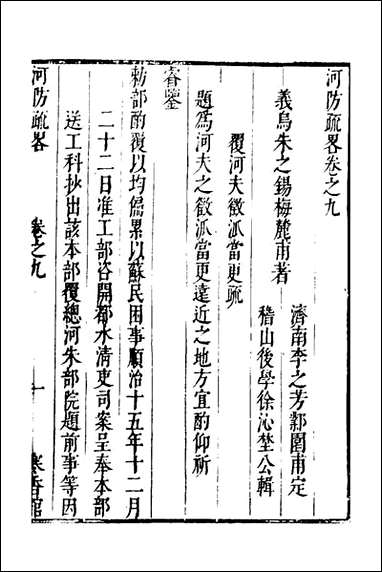 河防疏畧卷之九
義烏朱之錫梅麓甫著
濟南李之芳鄴園甫定
稽山後學徐沁埜公輯
覆河夫徵派當更疏
題爲河夫之徵派當更遠近之地方宜酌仰祈
睿鑒
勅部酌覆以均偏累以蘇民困事順治十五年十二月
二十二日准工部咨開都水清吏司案呈奉本部
送工科抄出該本部覆總河朱部院題前事等因
河防疏畧
卷之九
一
寒香館